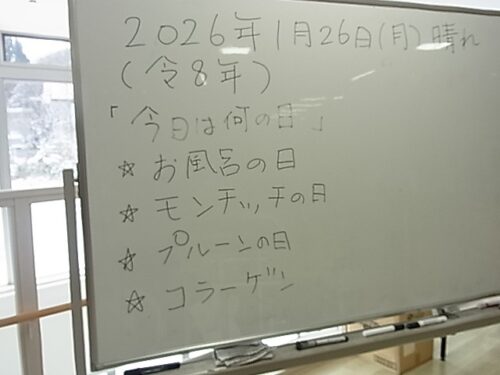 2026年1月26日(月)晴れ
(令8年)
「今日は何の日」
☆お風呂の日
☆モンチッチの日
☆プルーンの日
☆コラーゲン